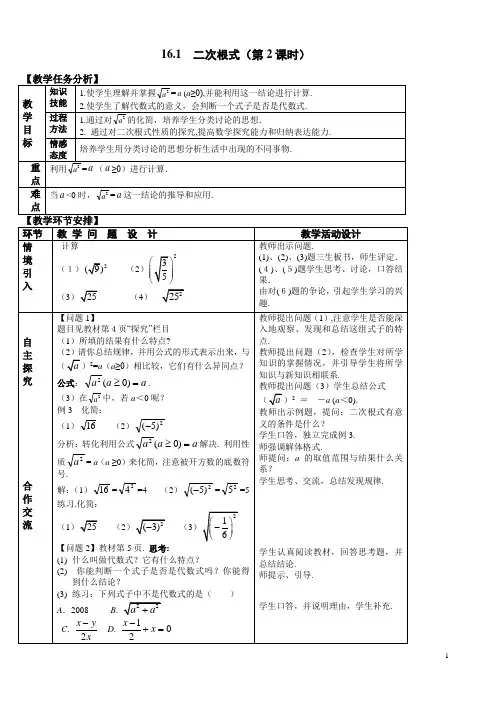 16.1 二次根式（第2课时）
【教学任务分析】
教学目标
知识技能
1.使学生理解并掌握√a²=a (a≥0),并能利用这一结论进行计算.
2.使学生了解代数式的意义，会判断一个式子是否是代数式.
过程方法
1.通过对√a²的化简，培养学生分类讨论的思想.
2. 通过对二次根式性质的探究,提高数学探究能力和归纳表达能力.
情感态度
培养学生用分类讨论的思想分析生活中出现的不同事物.
重点
利用√a²=a（a≥0）进行计算.
难点
当a<0时，√a²=a这一结论的推导和应用.
【教学环节安排】
环节 教 学 问 题 设 计 教学活动设计
情境引入
计算
(1) (√9)² (2) (√(3/5))²
(3) √25 (4) √25²
教师出示问题.
(1)、(2)、(3)题三生板书，师生评定.
(４)、(５)题学生思考、讨论，口答结果.
由对(６)题的争论，引起学生学习的兴趣.
自主探究
合作交流
【问题1】
题目见教材第4页“探究”栏目
（1）所填的结果有什么特点?
（2）请你总结规律，并用公式的形式表示出来，与(√a)²=a（a≥0）相比较，它们有什么异同点?
公式：√a²(a≥0)=a.
（3）在√a²中，若a＜0呢？
例3 化简：
（1）√16 （2）√(-5)²
分析：转化利用公式√a²(a≥0)=a解决. 利用性
质√a²=a（a≥0）来化简，注意被开方数的底数符号.
解:（1）√16=√4²=4 （2）√(-5)²=√5²=5
练习.化简:
（1）√25 （2）√(-3)² （3）√(-1/6)²
【问题2】教材第5页. 思考:
(1) 什么叫做代数式？它有什么特点？
(2) 你能判断一个式子是否是代数式吗？你能得到什么结论?
(3) 练习：下列式子中不是代数式的是（ ）
A. 2008 B. √a²+a²
C. (x-y)/2x D. (x-1)/2+x=0
教师提出问题（1）,注意学生是否能深入地观察、发现和总结这组式子的特点.
教师提出问题（2），检查学生对所学知识的掌握情况，并引导学生将所学知识与新知识相联系.
教师提出问题（3）学生总结公式
(√a)² ＝ －a (a＜0).
教师出示例题，提问：二次根式有意义的条件是什么？
学生口答，独立完成例3.
师强调解体格式.
师提问：a 的取值范围与结果什么关系？
学生思考、交流，总结发现规律.
学生认真阅读教材，回答思考题，并总结结论.
师提示、引导.
学生口答，并说明理由，学生补充.
1